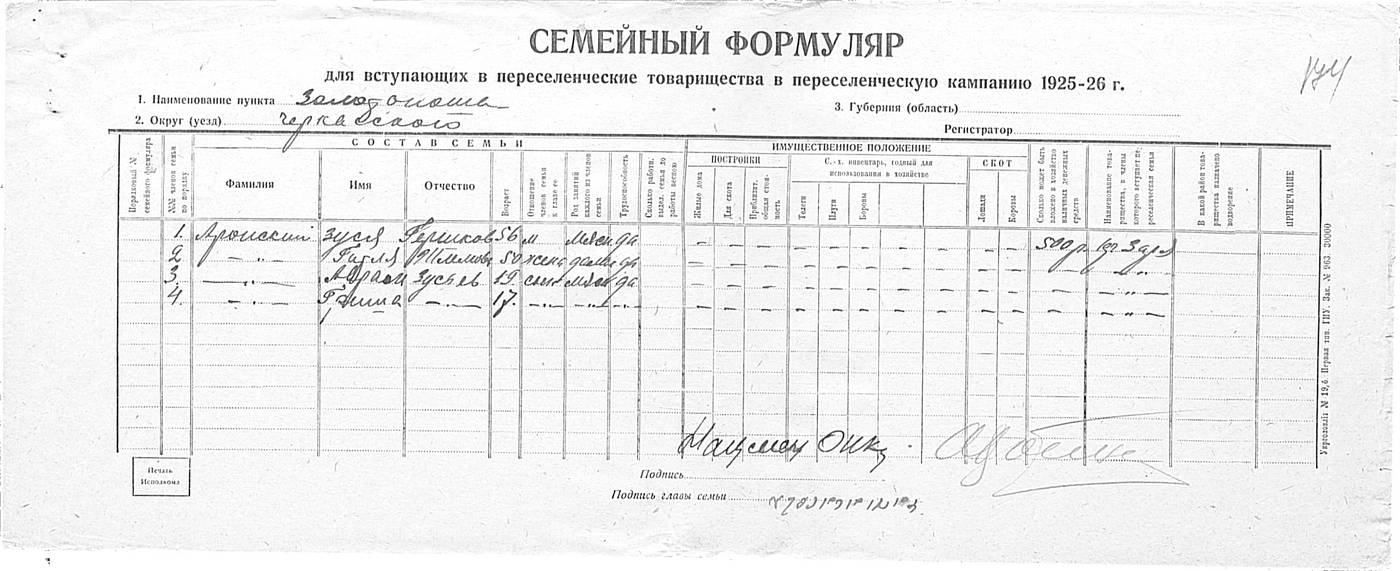 СЕМЕЙНЫЙ ФОРМУЛЯР
для вступающих в переселенческие товарищества в переселенческую кампанию 1925-26 г.
174
1. Наименование пункта Золотоноша
3. Губерния (область)
2. Округ (уезд) Черкасского
Регистратор
Порядковый № семейного формуляра
№№ членов семьи по порядку
СОСТАВ СЕМЬИ
Фамилия
Имя
Отчество
Возраст
Отношение членов семьи к главе ее
Род занятий каждого из членов семьи
Трудоспособность
Сколько работн. выдел. семья до работы весною
ИМУЩЕСТВЕННОЕ ПОЛОЖЕНИЕ
ПОСТРОЙКИ
Жилые дома
Для скота
Приблизит. общая стоимость
С.-х. инвентарь, годный для использования в хозяйстве
Телеги
Плуги
Бороны
СКОТ
Лошади
Коровы
Сколько может быть вложено в хозяйство наличных денежных средств
Наименование товарищества, в члены которого вступает переселенческая семья
В какой район товарищества назначено водворение
ПРИМЕЧАНИЕ
1. Аронский Зуся Гершков 56 м мясн да — — — — — — — — — — 500 р. Заря
2 — „ — Гитля 50 жена да — — — — — — — — — — — — „ —
3. — „ — Абрам Зусьев 19 сын мясн да — — — — — — — — — — — — „ —
4. — „ — Гриша — „ — 17. — „ — — „ — — „ — — — — — — — — — — — — — „ —
Нацмен ОИК
Печать Исполкома
Подпись
Подпись главы семьи
Укрголовліт № 19,6. Первая тип. ГИУ. Зак. № 963. 30000